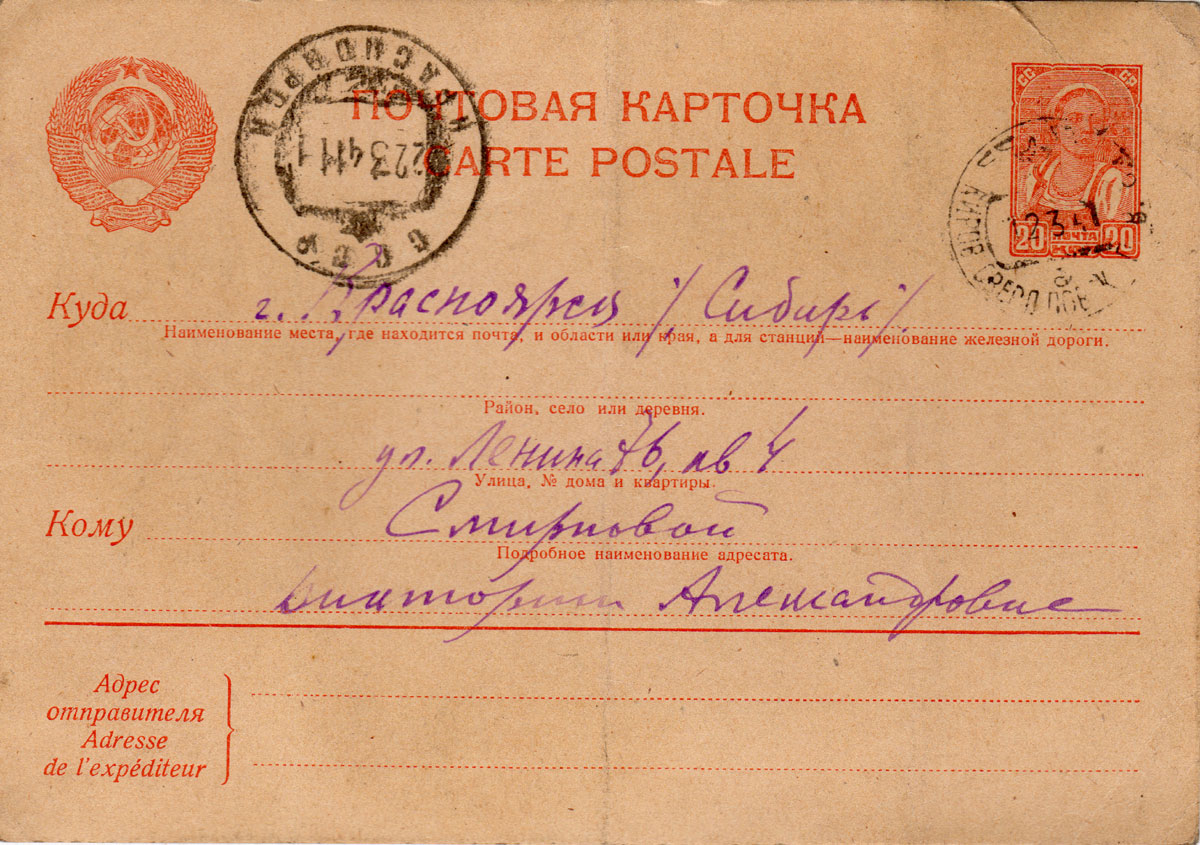 ПОЧТОВАЯ КАРТОЧКА
CARTE POSTALE
СС СР
20 ПОЧТА 20
22341 1
12341
СССР
Куда г. Красноярск /Сибирь/.
Наименование места, где находится почта, и области или края, а для станций—наименование железной дороги.
Район, село или деревня.
ул. Ленина 76, кв 4
Улица, № дома и квартиры.
Кому Смирновой
Подробное наименование адресата.
Виктории Александровне
Адрес
отправителя
Adresse
de l'expéditeur